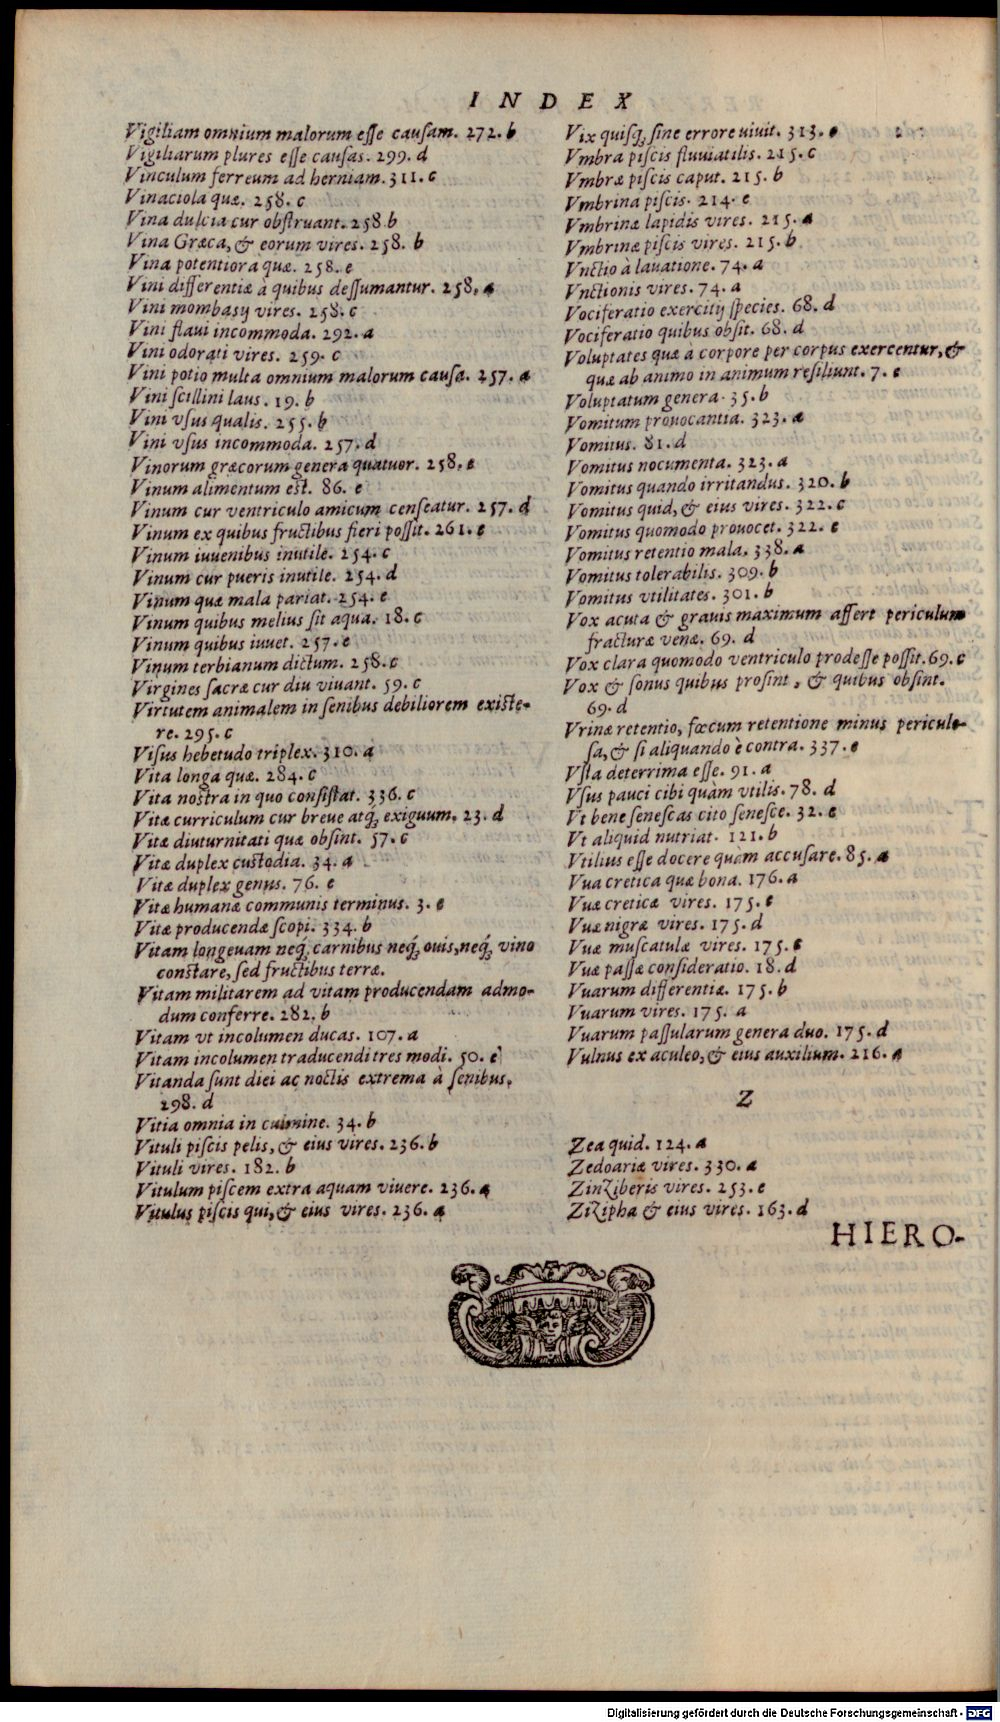 INDEX
Vigiliam omnium malorum esse causam. 272. b
Vigiliarum plures esse causas. 299. d
Vinculum ferreum ad herniam. 311. c
Vinaciola quæ. 258. c
Vina dulcia cur obstruant. 258 b
Vina Græca, & eorum vires. 258. b
Vina potentiora quæ. 258. e
Vini differentiæ à quibus dessumantur. 258. a
Vini mombasij vires. 258. c
Vini flaui incommoda. 292. a
Vini odorati vires. 259. c
Vini potio multa omnium malorum causa. 257. a
Vini scillini laus. 19. b
Vini vsus qualis. 255. b
Vini vsus incommoda. 257. d
Vinorum græcorum genera quatuor. 258. e
Vinum alimentum est. 86. e
Vinum cur ventriculo amicum censeatur. 257. d
Vinum ex quibus fructibus fieri possit. 261. e
Vinum iuuenibus inutile. 254. c
Vinum cur pueris inutile. 254. d
Vinum quæ mala pariat. 254. e
Vinum quibus melius sit aqua. 18. c
Vinum quibus iuuet. 257. e
Vinum terbianum dictum. 258. c
Virgines sacræ cur diu viuant. 59. c
Virtutem animalem in senibus debiliorem existe-
re. 295. c
Visus hebetudo triplex. 310. a
Vita longa quæ. 284. c
Vita nostra in quo consistat. 336. c
Vitæ curriculum cur breue atq; exiguum. 23. d
Vitæ diuturnitati quæ obsint. 57. c
Vitæ duplex custodia. 34. a
Vitæ duplex genus. 76. e
Vitæ humanæ communis terminus. 3. e
Vitæ producendæ scopi. 334. b
Vitam longeuam neq; carnibus neq; ouis, neq; vino
constare, sed fructibus terræ.
Vitam militarem ad vitam producendam admo-
dum conferre. 282. b
Vitam vt incolumen ducas. 107. a
Vitam incolumen traducendi tres modi. 50. e
Vitanda sunt diei ac noctis extrema à senibus.
298. d
Vitia omnia in culmine. 34. b
Vituli piscis pelis, & eius vires. 236. b
Vituli vires. 182. b
Vitulum piscem extra aquam viuere. 236. a
Vitulus piscis qui, & eius vires. 236. a
Vix quisq; sine errore uiuit. 313. e
Vmbra piscis fluuiatilis. 215. c
Vmbræ piscis caput. 215. b
Vmbrina piscis. 214. e
Vmbrinæ lapidis vires. 215. a
Vmbrinæ piscis vires. 215. b
Vnctio à lauatione. 74. a
Vnctionis vires. 74. a
Vociferatio exercitij species. 68. d
Vociferatio quibus obsit. 68. d
Voluptates quæ à corpore per corpus exercentur, &
quæ ab animo in animum resiliunt. 7. e
Voluptatum genera. 35. b
Vomitum prouocantia. 323. a
Vomitus. 81. d
Vomitus nocumenta. 323. a
Vomitus quando irritandus. 320. b
Vomitus quid, & eius vires. 322. c
Vomitus quomodo prouocet. 322. e
Vomitus retentio mala. 338. a
Vomitus tolerabilis. 309. b
Vomitus vtilitates. 301. b
Vox acuta & grauis maximum affert periculum
fracturæ venæ. 69. d
Vox clara quomodo ventriculo prodesse possit. 69. c
Vox & sonus quibus prosint, & quibus obsint.
69. d
Vrinæ retentio, fœcum retentione minus periculo-
sa, & si aliquando è contra. 337. e
Vsta deterrima esse. 91. a
Vsus pauci cibi quàm vtilis. 78. d
Vt bene senescas cito senesce. 32. e
Vt aliquid nutriat. 121. b
Vtilius esse docere quàm accusare. 85. a
Vua cretica quæ bona. 176. a
Vuæ creticæ vires. 175. e
Vuæ nigræ vires. 175. d
Vuæ muscatulæ vires. 175. e
Vuæ passæ consideratio. 18. d
Vuarum differentiæ. 175. b
Vuarum vires. 175. a
Vuarum passularum genera duo. 175. d
Vulnus ex aculeo, & eius auxilium. 216. a
Z
Zea quid. 124. a
Zedoariæ vires. 330. a
Zinziberis vires. 253. e
Zizipha & eius vires. 163. d
HIERO-
Digitalisierung gefördert durch die Deutsche Forschungsgemeinschaft - DFG